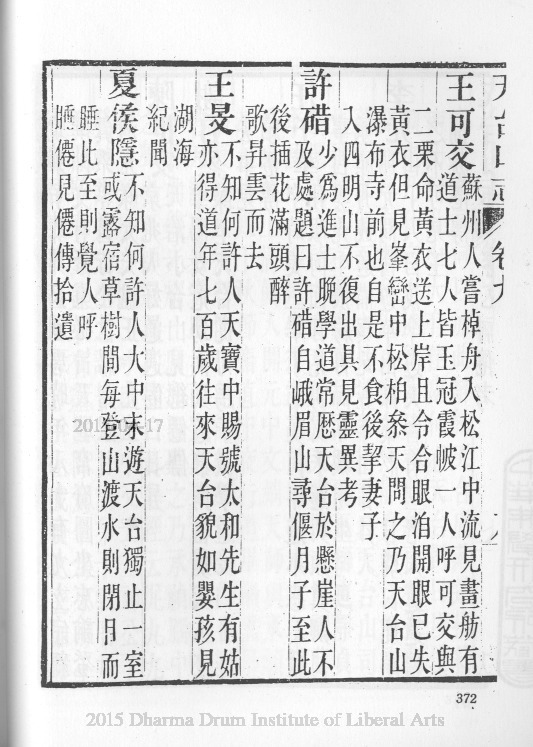 天台山志 卷九 八
王可交 蘇州人嘗棹舟入松江中流見畫舫有
道士七人皆玉冠霞帔一人呼可交與
二栗命黃衣送上岸且令合眼洎開眼已失
黃衣但見峯巒中松柏叅天問之乃天台山
瀑布寺前也自是不食後挈妻子
入四明山不復出具見靈異考
許碏 少爲進士晚學道常厯天台於懸崖人不
及處題曰許碏自峨眉山尋偃月子至此
後插花滿頭醉
歌昇雲而去
王旻 不知何許人天寶中賜號太和先生有姑
亦得道年七百歲往來天台貌如嬰孩見
湖海
紀聞
夏侯隱 不知何許人大中末遊天台獨止一室
或露宿草樹間每登山渡水則閉目而
睡比至則覺人呼
睡僊見僊傳拾遺
372
2015 Dharma Drum Institute of Liberal Arts